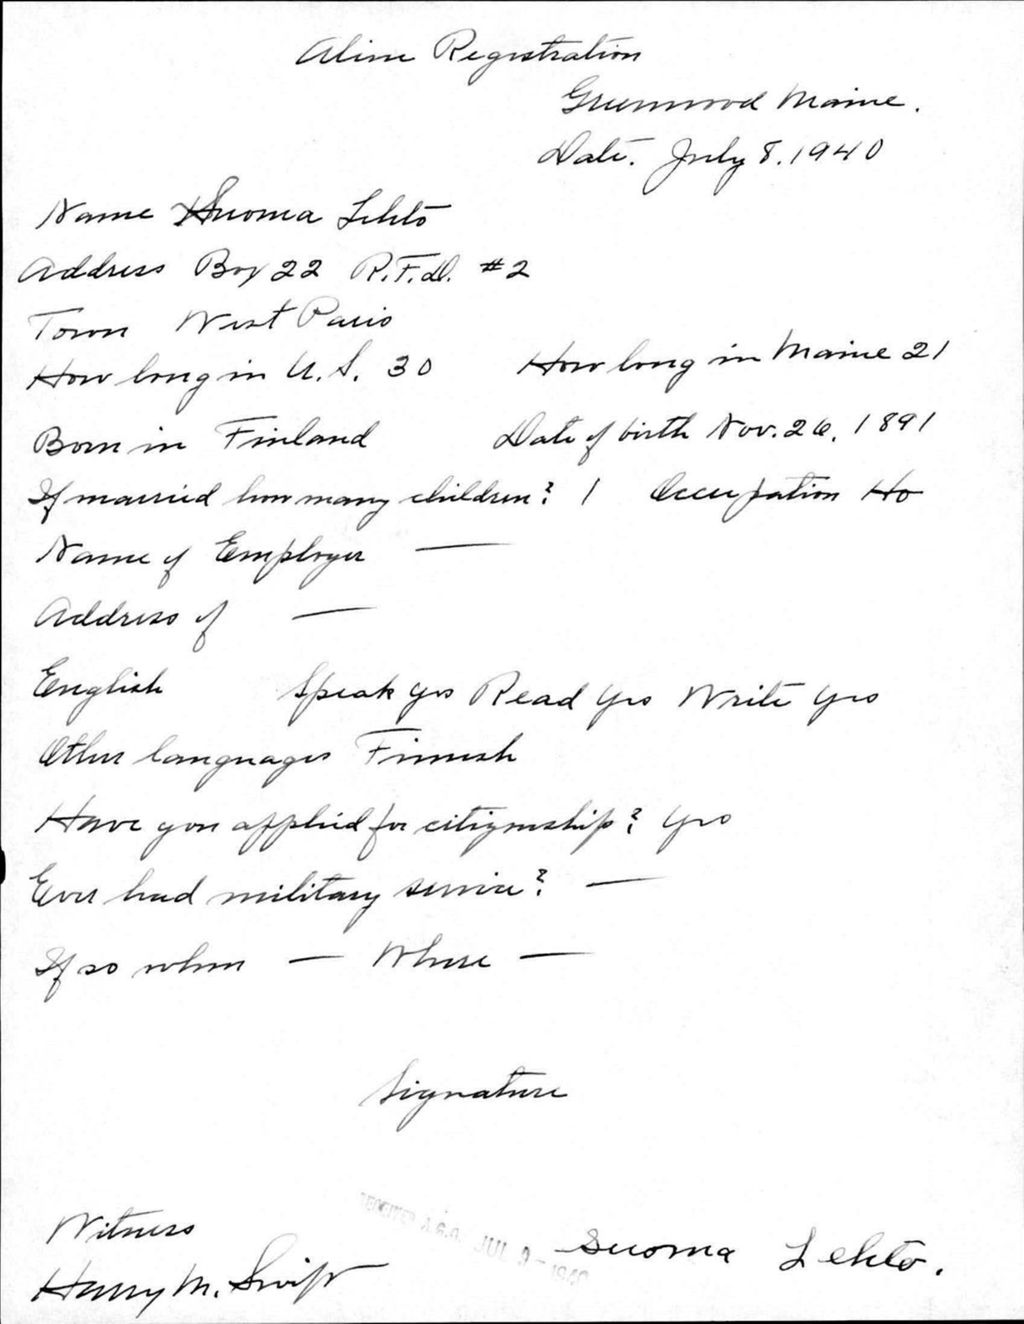 Aline Registration
Greenwood Maine.
Date. July 8. 1940
Name Suoma Lehto
Address Box 22 R.F.D. #2
Town West Paris
How long in U.S. 30 How long in Maine 21
Born in Finland Date of birth Nov. 26, 1891
If married how many children? 1 Occupation Ho
Name of Employer —
Address of —
English Speak yes Read yes Write yes
Other languages Finnish
Have you applied for citizenship? yes
Ever had military service? —
If so when — Where —
Signature
Witness
RECEIVED A.G.O. JUL 9 - 1940
Suoma Lehto.
Harry M. Swift